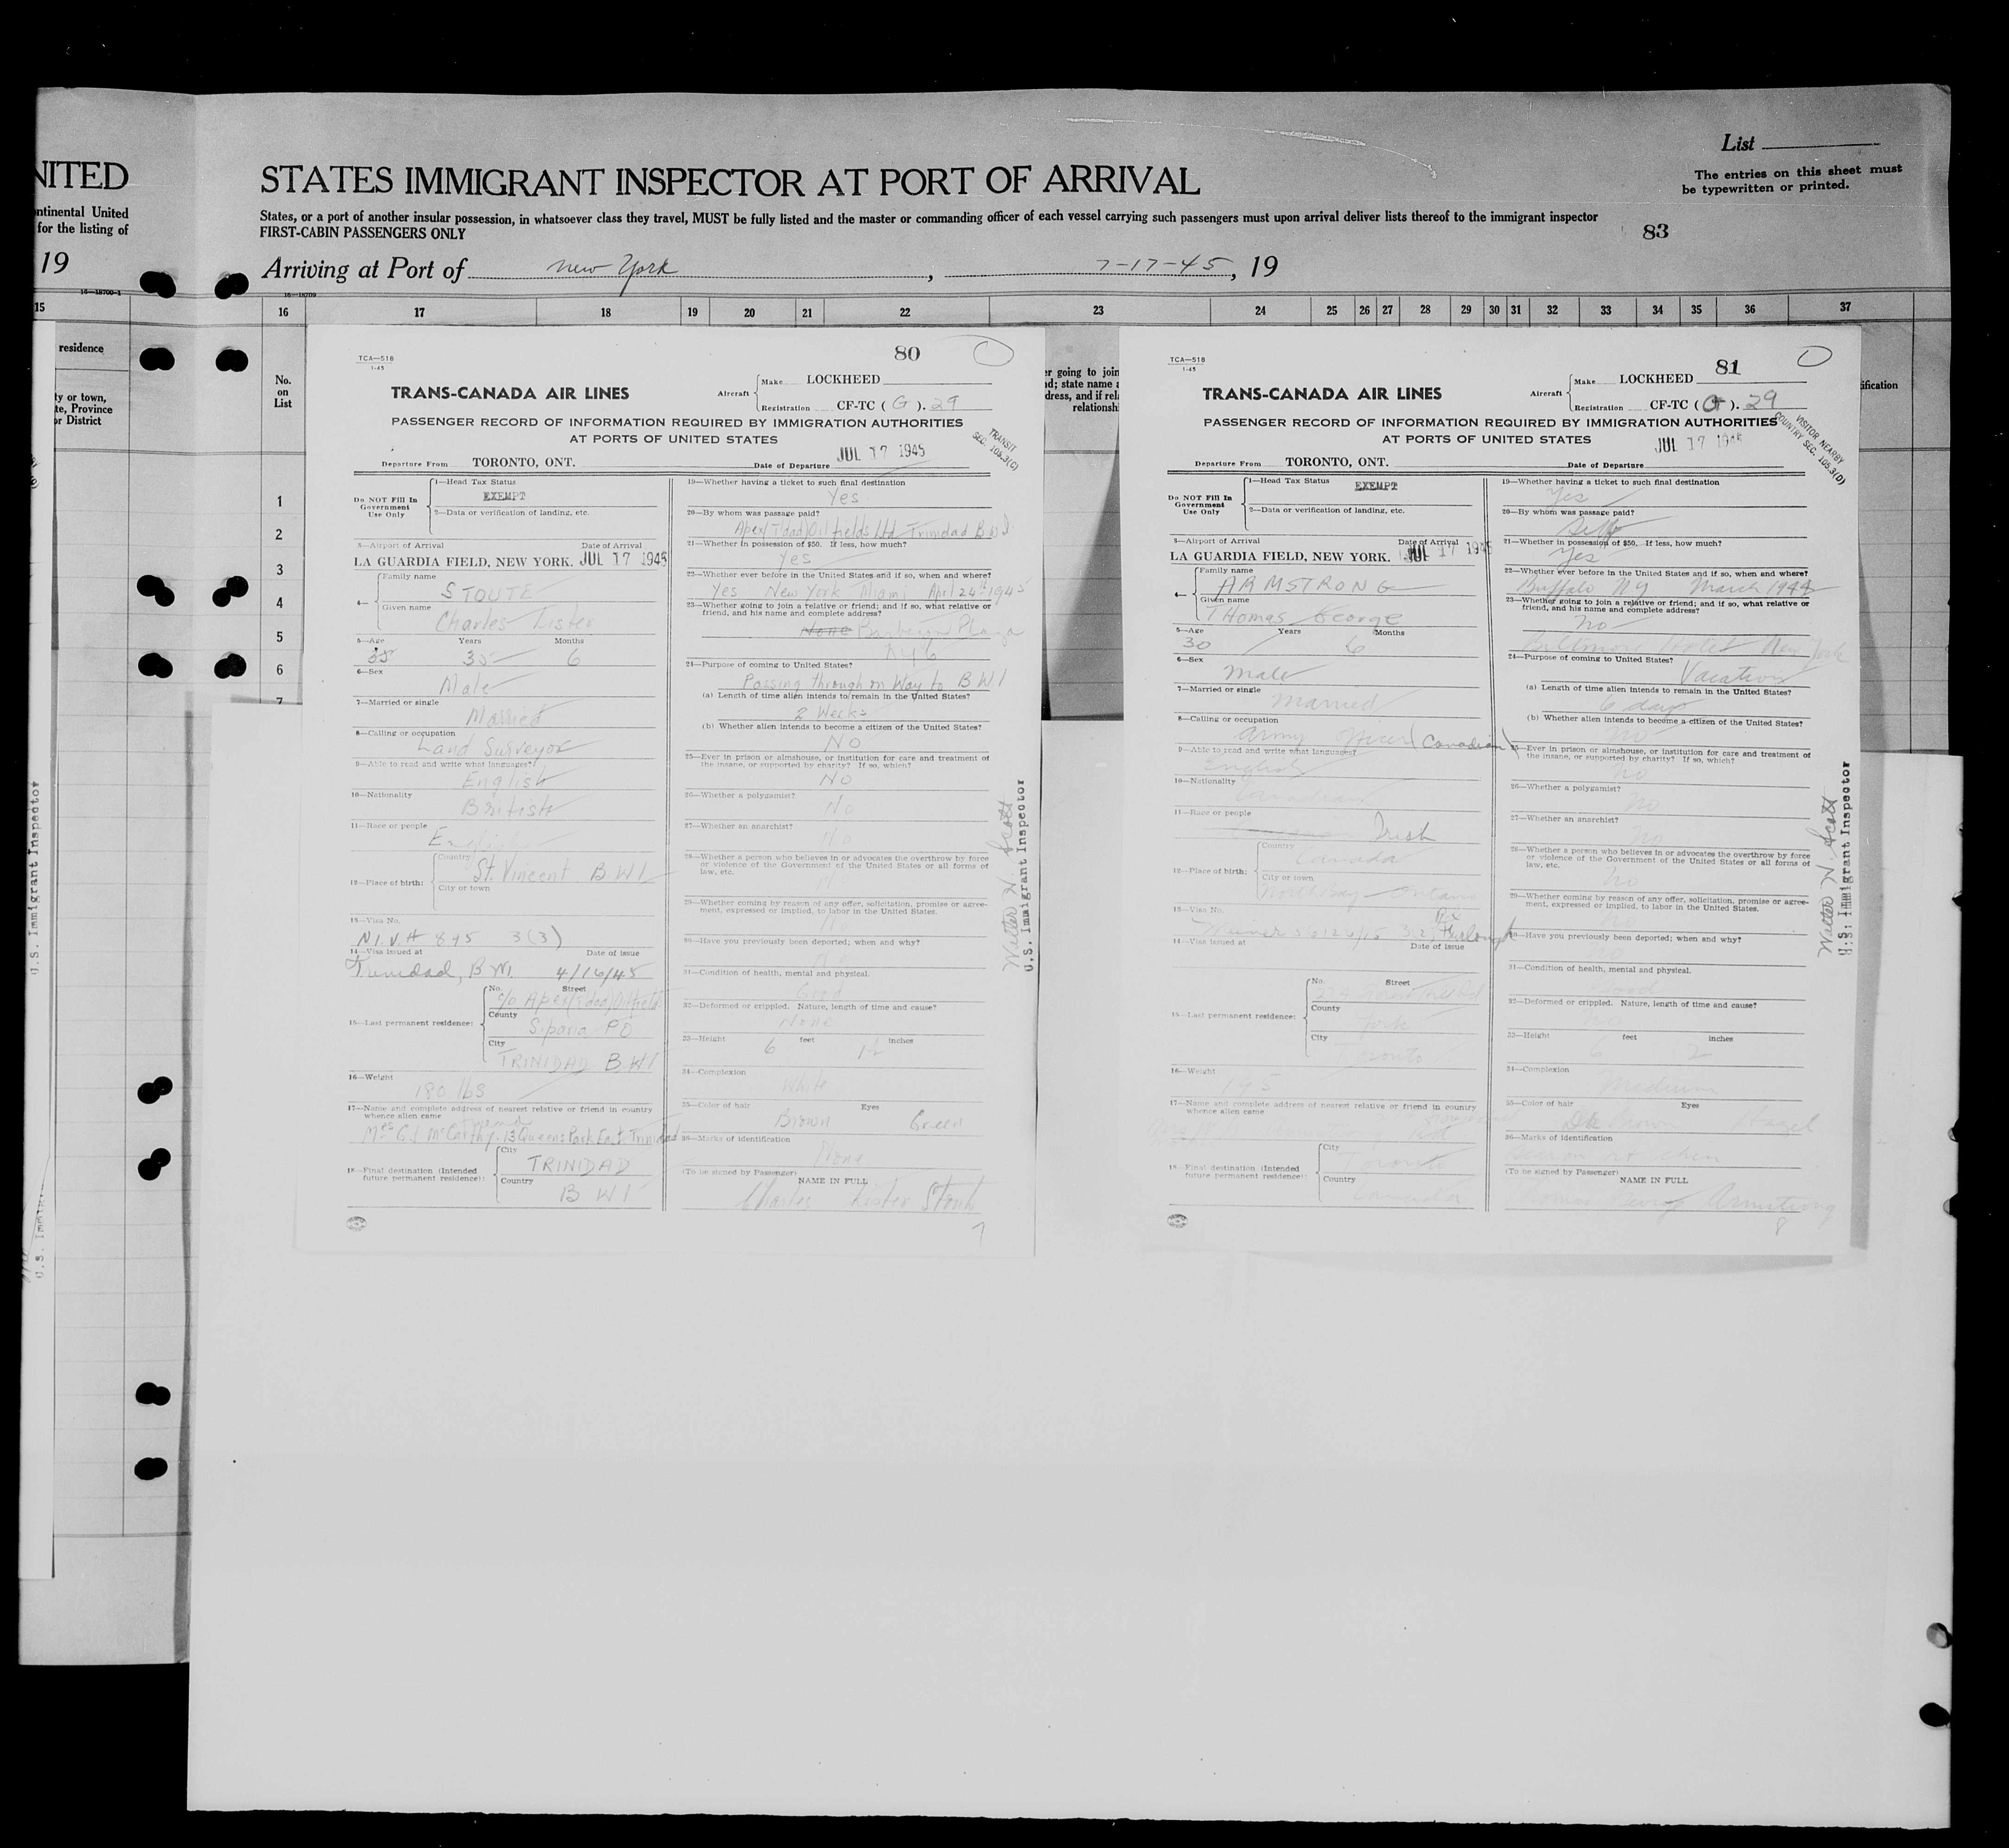 List
The entries on this sheet must
be typewritten or printed.
NITED
STATES IMMIGRANT INSPECTOR AT PORT OF ARRIVAL
ntinental United
for the listing of
States, or a port of another insular possession, in whatsoever class they travel, MUST be fully listed and the master or commanding officer of each vessel carrying such passengers must upon arrival deliver lists thereof to the immigrant inspector
FIRST-CABIN PASSENGERS ONLY
83
19
Arriving at Port of New York, 7-17-45, 19
16-18700-1
16-18709
15 16 17 18 19 20 21 22 23 24 25 26 27 28 29 30 31 32 33 34 35 36 37
residence
ty or town,
te, Province
or District
No.
on
List
1
2
3
4
5
6
7
er going to join
relationsh
ification
U.S. Immigrant Inspector
TCA—518
1-45
80
TRANS-CANADA AIR LINES
Aircraft
Make LOCKHEED
Registration CF-TC ( G ). 29
PASSENGER RECORD OF INFORMATION REQUIRED BY IMMIGRATION AUTHORITIES
AT PORTS OF UNITED STATES
TRANSIT
SEC. 105.3(C)
Departure From TORONTO, ONT.
Date of Departure JUL 17 1945
Do NOT Fill In
Government
Use Only
1—Head Tax Status
EXEMPT
2—Data or verification of landing, etc.
3—Airport of Arrival Date of Arrival
LA GUARDIA FIELD, NEW YORK. JUL 17 1945
4—
Family name
STOUTE
Given name
Charles Lister
5—Age Years Months
35 35 6
6—Sex
Male
7—Married or single
Married
8—Calling or occupation
Land Surveyor
9—Able to read and write what languages?
English
10—Nationality
British
11—Race or people
English
12—Place of birth:
Country
St. Vincent BWI
City or town
13—Visa No.
N.I.V.# 895 3(3)
14—Visa issued at Date of issue
Trinidad, B.W.I. 4/16/45
15—Last permanent residence:
No. Street
c/o Apex (T'dad) Oilfields
County
Siparia PO
City
TRINIDAD BWI
16—Weight
180 lbs
17—Name and complete address of nearest relative or friend in country
whence alien came
friend
Mrs G.J. McCarthy. 13 Queens Park East Trinidad
18—Final destination (Intended
future permanent residence):
City
TRINIDAD
Country
BWI
19—Whether having a ticket to such final destination
Yes
20—By whom was passage paid?
Apex (T'dad) Oilfields Ltd Trinidad BWI
21—Whether in possession of $50. If less, how much?
Yes
22—Whether ever before in the United States and if so, when and where?
Yes New York Miami April 24th 1945
23—Whether going to join a relative or friend; and if so, what relative or
friend, and his name and complete address?
None Barbizon Plaza
NYC
24—Purpose of coming to United States?
Passing through on Way to BWI
(a) Length of time alien intends to remain in the United States?
2 Weeks
(b) Whether alien intends to become a citizen of the United States?
No
25—Ever in prison or almshouse, or institution for care and treatment of
the insane, or supported by charity? If so, which?
No
26—Whether a polygamist?
No
27—Whether an anarchist?
No
28—Whether a person who believes in or advocates the overthrow by force
or violence of the Government of the United States or all forms of
law, etc.
No
29—Whether coming by reason of any offer, solicitation, promise or agree-
ment, expressed or implied, to labor in the United States.
No
30—Have you previously been deported; when and why?
No
31—Condition of health, mental and physical.
Good
32—Deformed or crippled. Nature, length of time and cause?
None
33—Height 6 feet 1½ inches
34—Complexion
White
35—Color of hair Eyes
Brown Green
36—Marks of identification
None
(To be signed by Passenger)
NAME IN FULL
Charles Lister Stoute
7
Walter H. Scott
U.S. Immigrant Inspector
TCA—518
1-45
81
TRANS-CANADA AIR LINES
Aircraft
Make LOCKHEED
Registration CF-TC ( G ). 29
PASSENGER RECORD OF INFORMATION REQUIRED BY IMMIGRATION AUTHORITIES
AT PORTS OF UNITED STATES
VISITOR NEARBY
COUNTRY SEC. 105.3(D)
Departure From TORONTO, ONT.
Date of Departure JUL 17 1945
Do NOT Fill In
Government
Use Only
1—Head Tax Status
EXEMPT
2—Data or verification of landing, etc.
3—Airport of Arrival Date of Arrival
LA GUARDIA FIELD, NEW YORK. JUL 17 1945
4—
Family name
ARMSTRONG
Given name
THomas George
5—Age Years Months
30 6
6—Sex
Male
7—Married or single
Married
8—Calling or occupation
Army Officer (Canadian)
9—Able to read and write what languages?
English
10—Nationality
Canadian
11—Race or people
Irish
12—Place of birth:
Country
Canada
City or town
North Bay Ontario
13—Visa No.
14—Visa issued at Date of issue
15—Last permanent residence:
No. Street
County
York
City
Toronto
16—Weight
195
17—Name and complete address of nearest relative or friend in country
whence alien came
18—Final destination (Intended
future permanent residence):
City
Toronto
Country
Canada
19—Whether having a ticket to such final destination
Yes
20—By whom was passage paid?
Self
21—Whether in possession of $50. If less, how much?
Yes
22—Whether ever before in the United States and if so, when and where?
Buffalo NY March 1944
23—Whether going to join a relative or friend; and if so, what relative or
friend, and his name and complete address?
no
Biltmore Hotel New York
24—Purpose of coming to United States?
Vacation
(a) Length of time alien intends to remain in the United States?
6 days
(b) Whether alien intends to become a citizen of the United States?
no
25—Ever in prison or almshouse, or institution for care and treatment of
the insane, or supported by charity? If so, which?
no
26—Whether a polygamist?
no
27—Whether an anarchist?
no
28—Whether a person who believes in or advocates the overthrow by force
or violence of the Government of the United States or all forms of
law, etc.
no
29—Whether coming by reason of any offer, solicitation, promise or agree-
ment, expressed or implied, to labor in the United States.
30—Have you previously been deported; when and why?
no
31—Condition of health, mental and physical.
Good
32—Deformed or crippled. Nature, length of time and cause?
33—Height 6 feet 2 inches
34—Complexion
Medium
35—Color of hair Eyes
Dk Brown Hazel
36—Marks of identification
(To be signed by Passenger)
NAME IN FULL
Thomas George Armstrong
8
Walter H. Scott
U.S. Immigrant Inspector